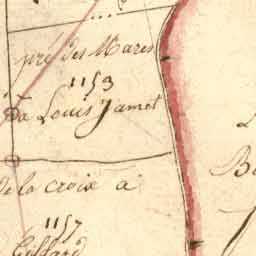 pré des Mares
1153
Da Louis Jamet
de la croix a
1157
Giffard